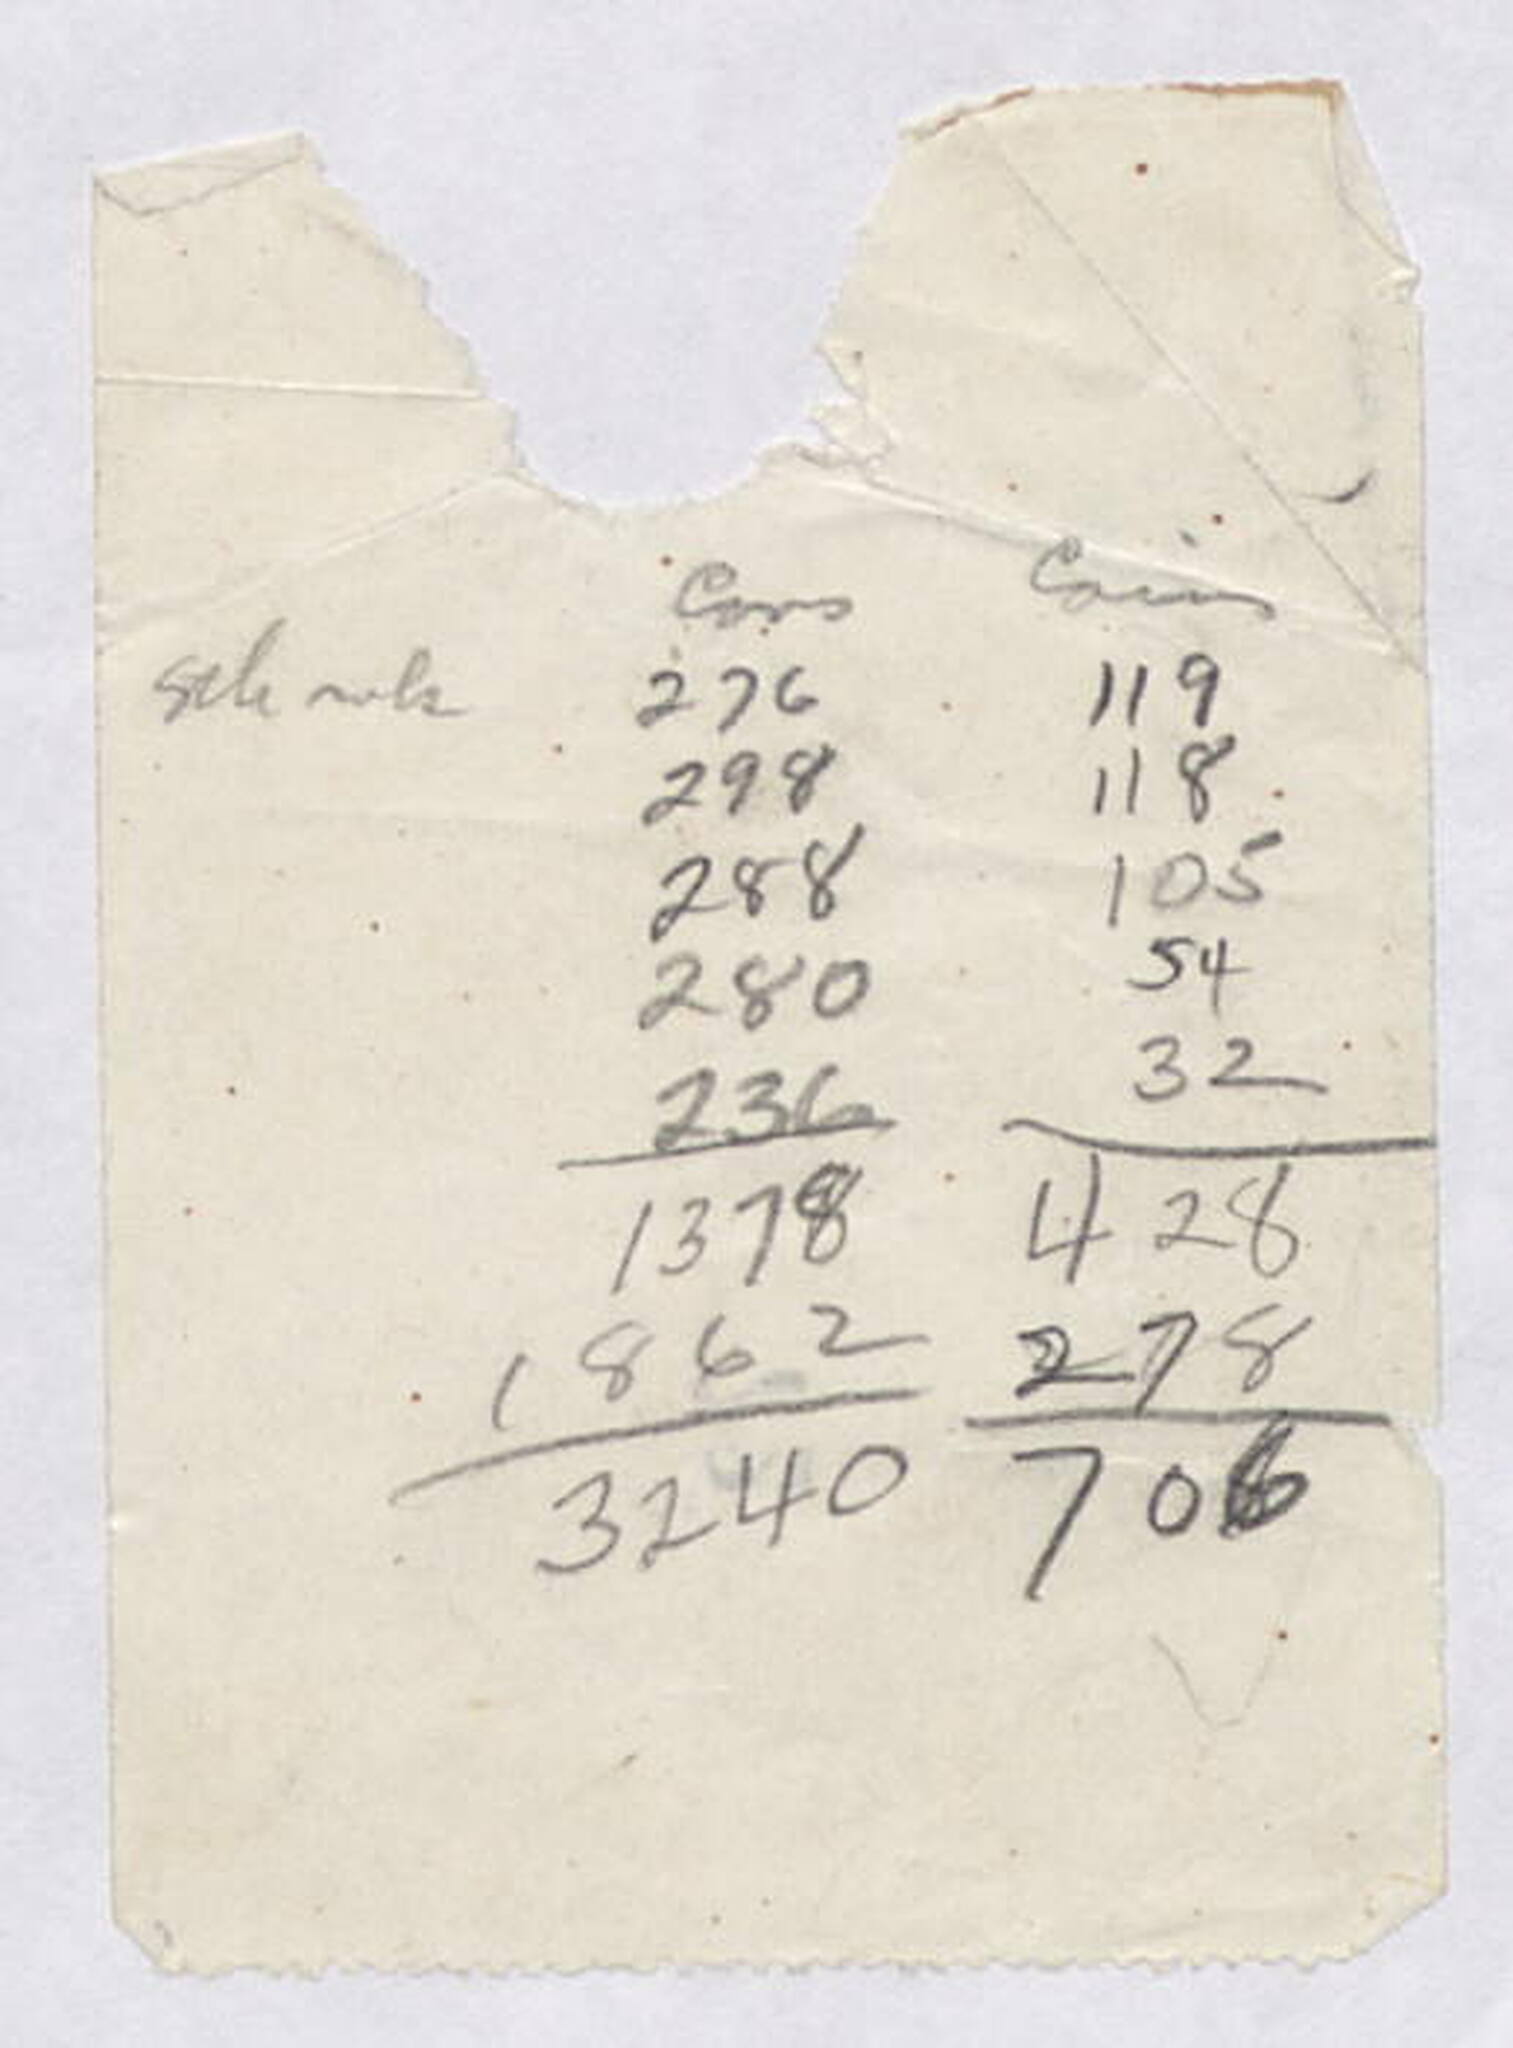 Cons Coins
276 119
298 118
288 105
280 54
236 32
1378 428
1862 278
3240 706